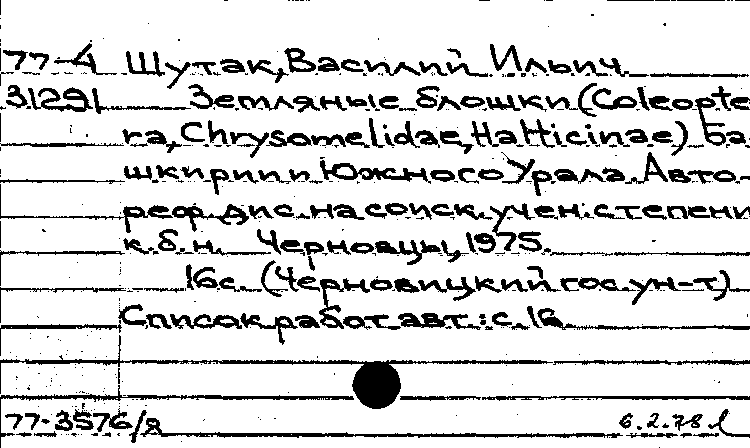 77-4 Шутак, Василий Ильич.
31291 Земляные блошки (Coleopte
ra, Chrysomelidae, Halticinae) Ба
шкирии и Южного Урала. Авто-
реф. дис. на соиск. учен. степени
к.б.н. Черновцы, 1975.
16с. (Черновицкий гос. ун-т)
Список работ авт.: с. 16.
77-3576/я 6.2.78